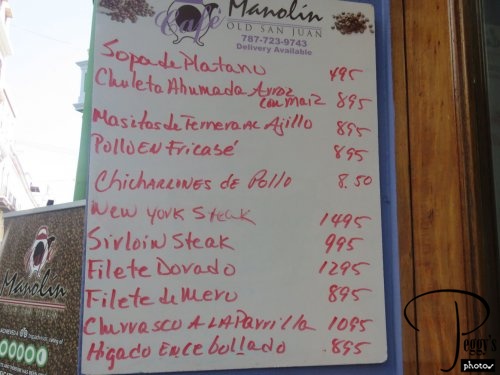 Café Manolín
OLD SAN JUAN
787-723-9743
Delivery Available
Sopa de Platano 495
Chuleta Ahumada Arroz
con maiz 895
Masitas de Ternera AL Ajillo 895
Pollo EN Fricasé 895
Chicharrones de Pollo 8.50
New York Steak 1495
Sirloin Steak 995
Filete Dorado 1295
Filete de Mero 895
Churrasco A LA Parrilla 1095
Higado Encebollado 895
Manolín
Peggy's
photos